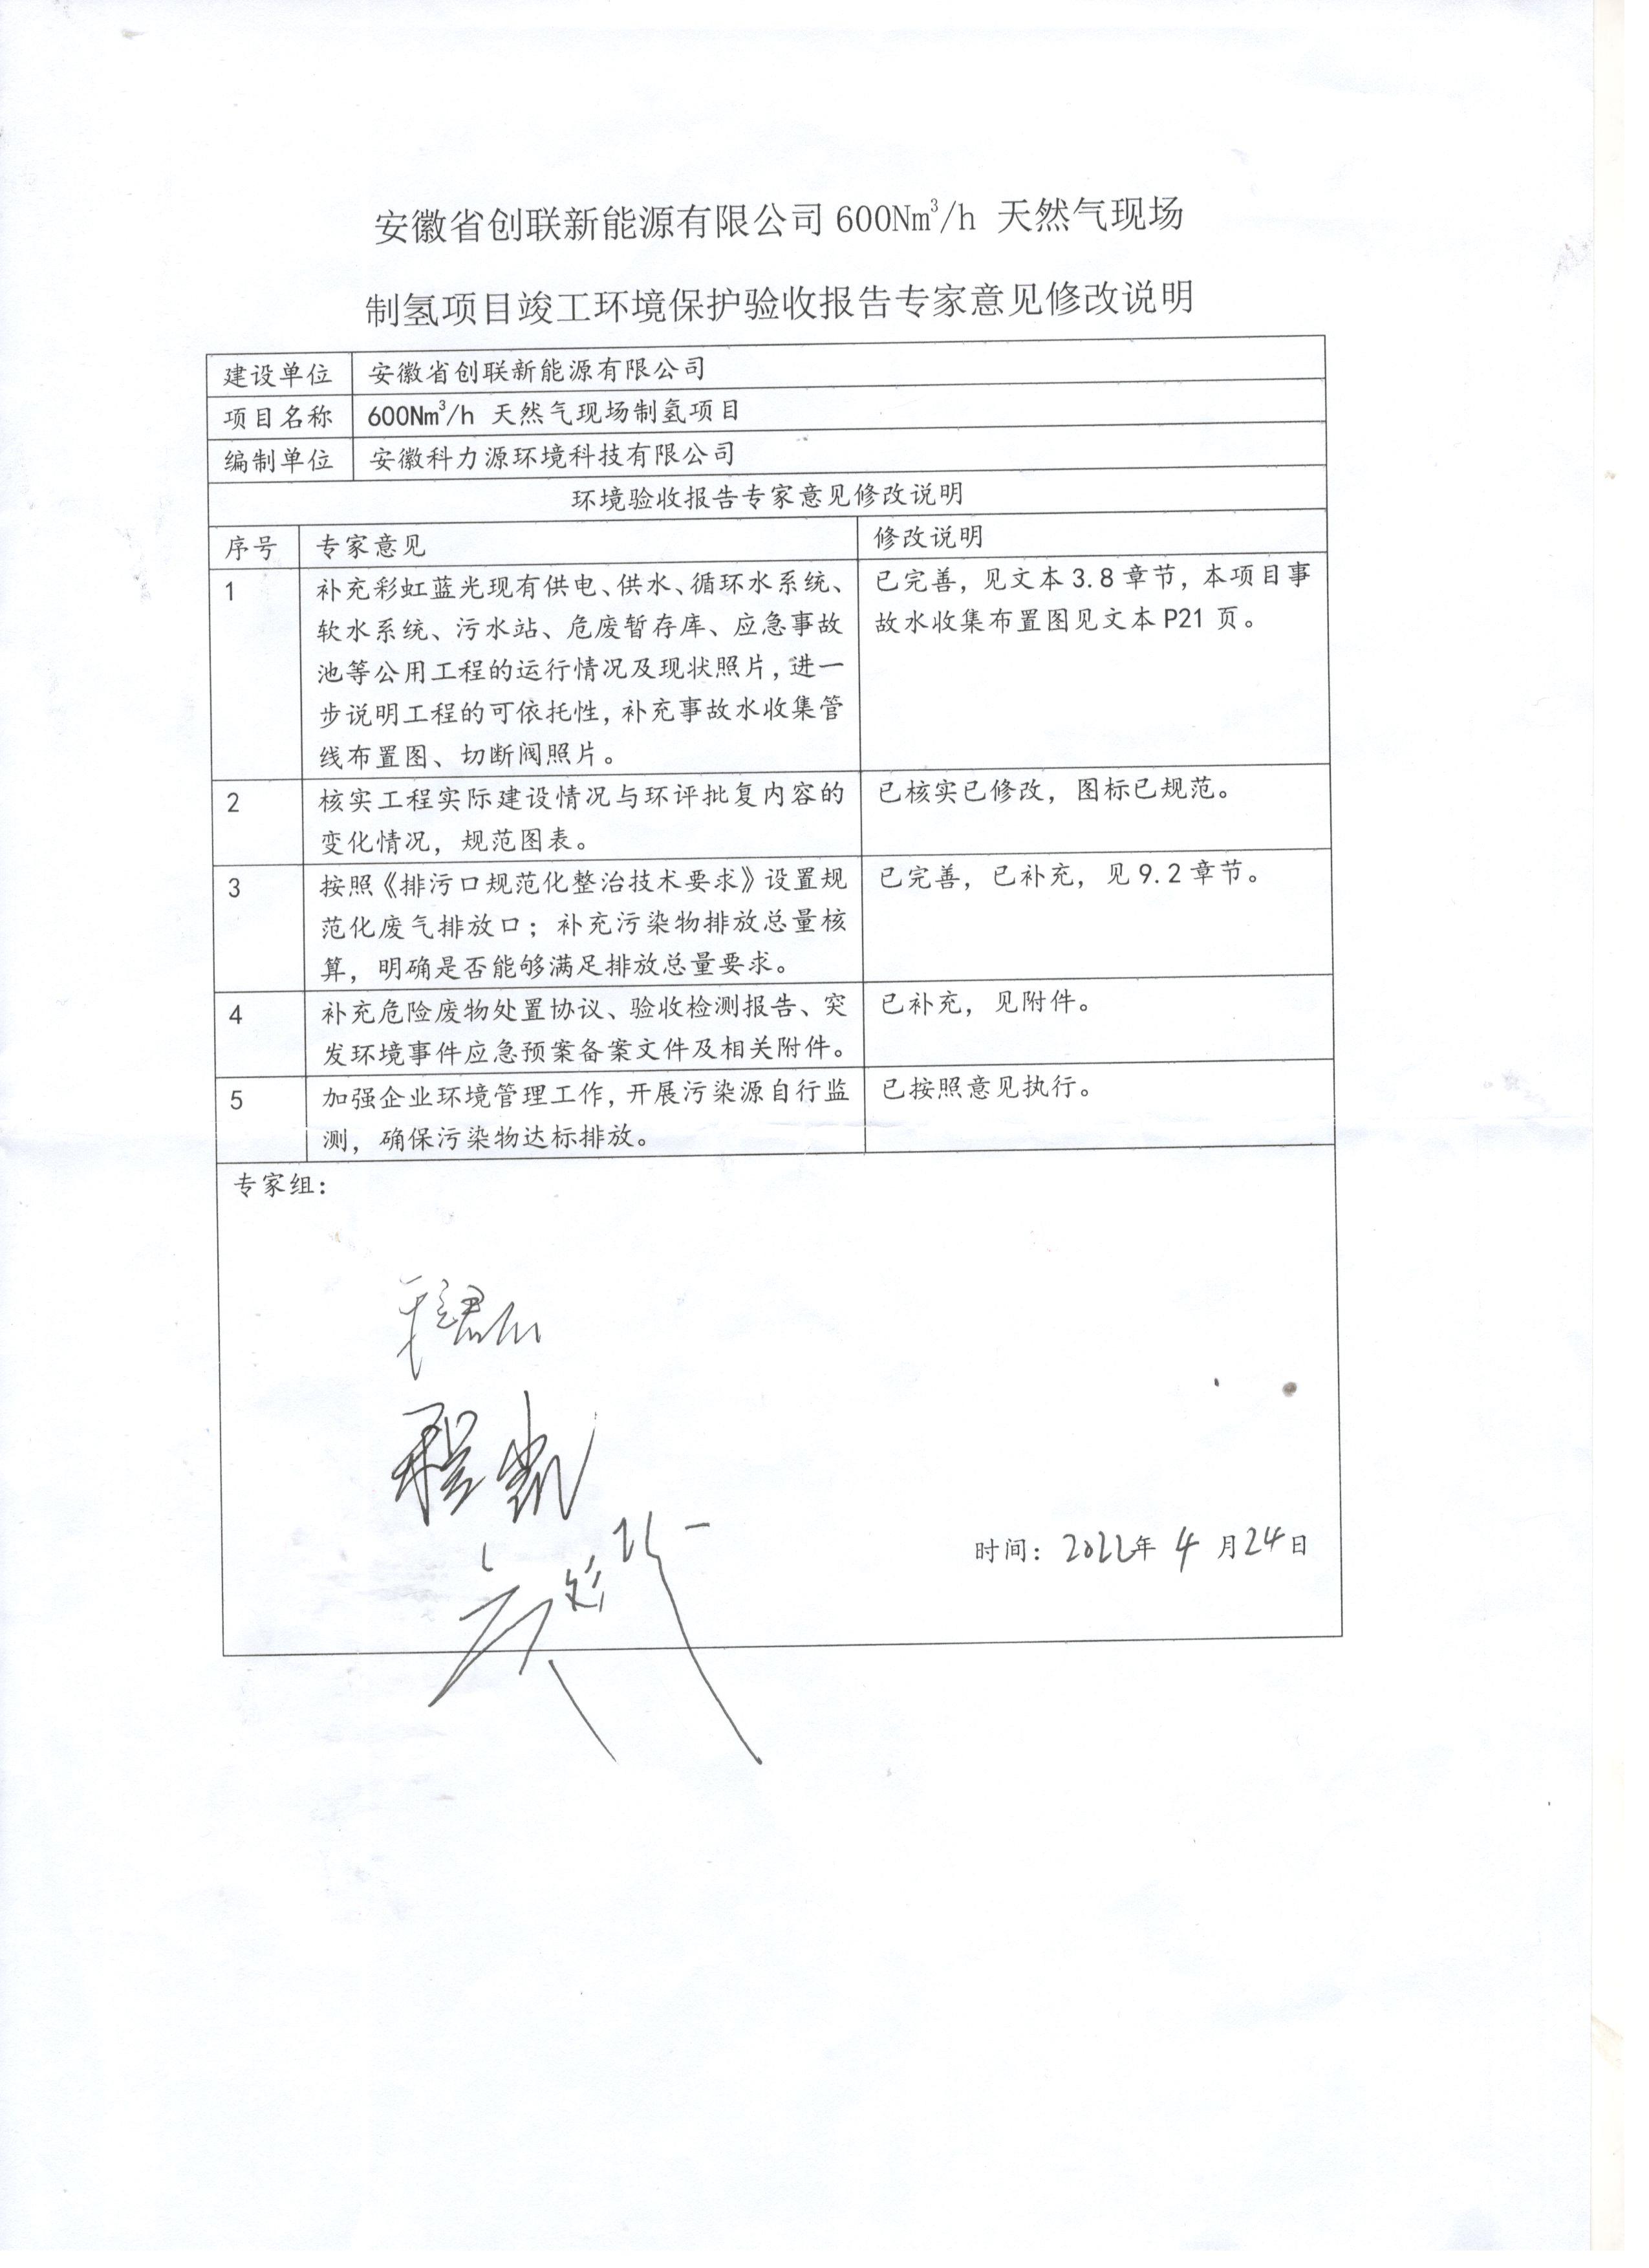 安徽省创联新能源有限公司 600Nm³/h 天然气现场
制氢项目竣工环境保护验收报告专家意见修改说明
建设单位 安徽省创联新能源有限公司
项目名称 600Nm³/h 天然气现场制氢项目
编制单位 安徽科力源环境科技有限公司
环境验收报告专家意见修改说明
序号 专家意见 修改说明
1 补充彩虹蓝光现有供电、供水、循环水系统、 已完善，见文本 3.8 章节，本项目事
软水系统、污水站、危废暂存库、应急事故 故水收集布置图见文本 P21 页。
池等公用工程的运行情况及现状照片，进一
步说明工程的可依托性，补充事故水收集管
线布置图、切断阀照片。
2 核实工程实际建设情况与环评批复内容的 已核实已修改，图标已规范。
变化情况，规范图表。
3 按照《排污口规范化整治技术要求》设置规 已完善，已补充，见 9.2 章节。
范化废气排放口；补充污染物排放总量核
算，明确是否能够满足排放总量要求。
4 补充危险废物处置协议、验收检测报告、突 已补充，见附件。
发环境事件应急预案备案文件及相关附件。
5 加强企业环境管理工作，开展污染源自行监 已按照意见执行。
测，确保污染物达标排放。
专家组：
程凯
时间：2022年 4 月 24 日